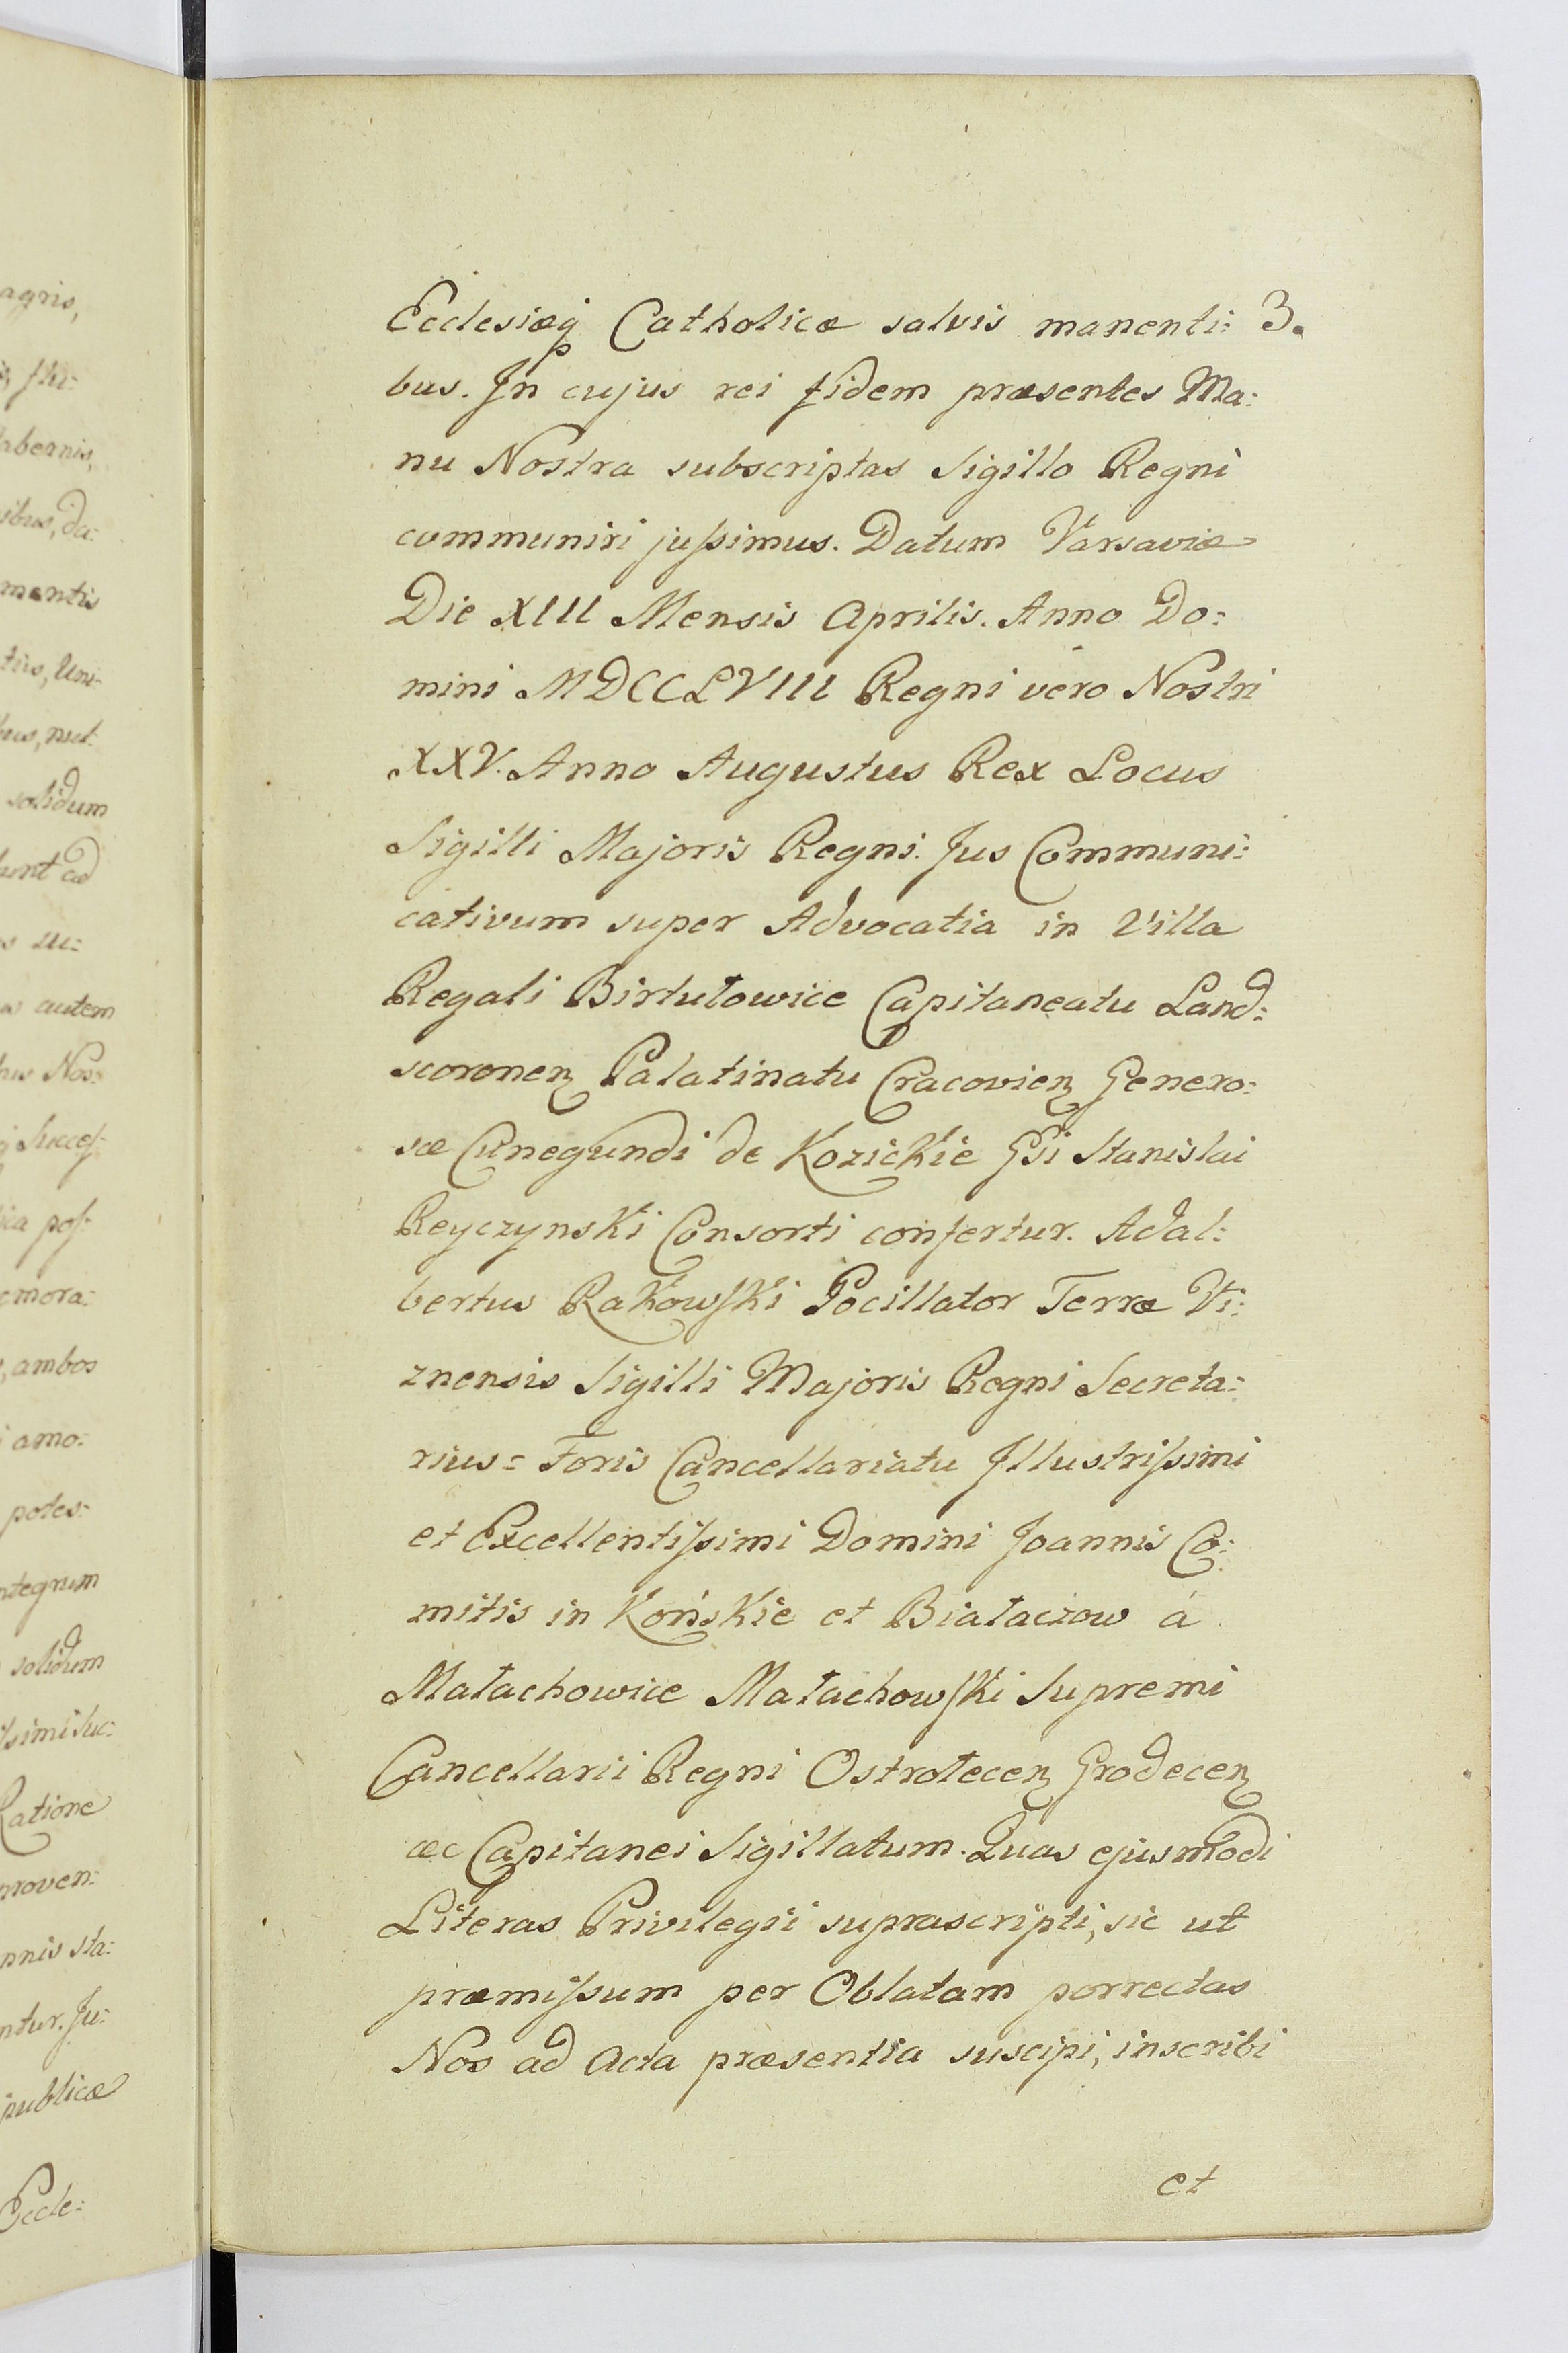 agris,
abernis,
mentis
solidum
autem
ambos
amo:
potes:
solidum
Ratione
proven:
publicæ
Eccle:
Ecclesiæq Catholicæ salvis manenti: 3.
bus. In cujus rei fidem præsentes Ma:
nu Nostra subscriptas Sigillo Regni
communiri jussimus. Datum Varsaviæ
Die XIII Mensis Aprilis. Anno Do:
mini MDCCLVIII Regni vero Nostri
XXV. Anno Augustus Rex Locus
Sigilli Majoris Regni. Jus Communi:
cativum super Advocatia in Villa
Regali Birtułowice Capitaneatu Land:
scoronen Palatinatu Cracovien Genero:
sæ Cunegundi de Kozickie Gsi Stanislai
Reyczynski Consorti confertur. Adal:
bertus Rakowski Pocillator Terræ Vi:
znensis Sigilli Majoris Regni Secreta:
rius = Foris Cancellariatu Illustrissimi
et Excellentissimi Domini Joannis Co:
mitis in Końskie et Białaczow á
Małachowice Małachowski Supremi
Cancellarii Regni Ostrołecen Grodecen
æc Capitanei Sigillatum. Quas ejusmodi
Literas Privilegii suprascripti, sic ut
præmissum per Oblatam porrectas
Nos ad Acta præsentia suscipi, inscribi
et